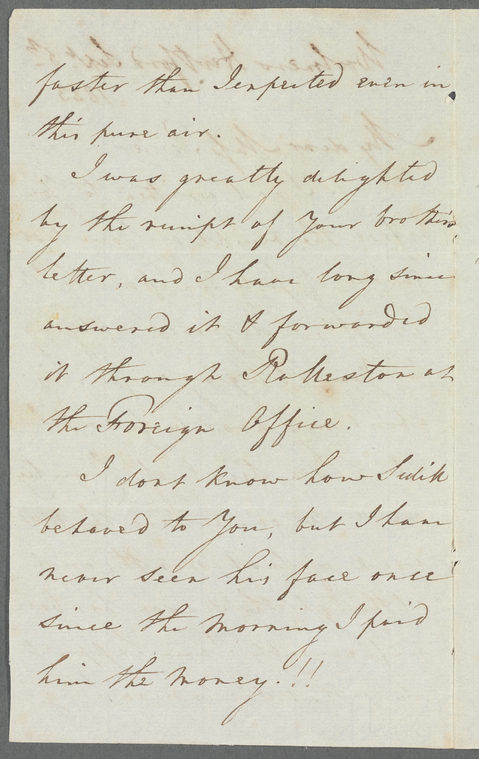 faster than I expected even in
this pure air.
I was greatly delighted
by the receipt of your brothers
letter, and I have long since
answered it & forwarded
it through Rolleston at
the Foreign Office.
I dont know how Sidik
behaved to You, but I have
never seen his face once
since the morning I paid
him the money.!!